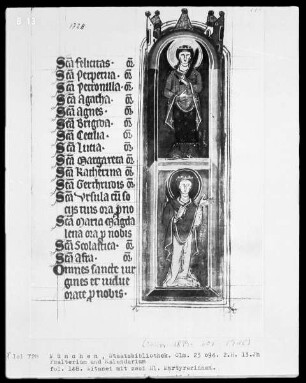 Scā felicitas. oā
Scā Perpetua. oā
Scā Petronilla. oā
Scā Agatha. oā
Scā Agnes. oā
Scā Brigida. oā
Scā Cecilia. oā
Scā Lucia. oā
Scā Margareta oā
Scā Katherina oā
Scā Gerthrudis oā
Scā Ursula cū so
cijs tuis ora p nob
Scā Maria Magda
lena ora p nobis.
Scā Scolastica. oā
Scā Afra. oā
Omnes sancte uir
gines et uidue
orate p nobis.
München, Staatsbibliothek. Clm. 23 090. 2.H. 13.Jh
Psalterium und Kalendarium
fol. 148. Litanei mit zwei Hl. Märtyrerinnen.